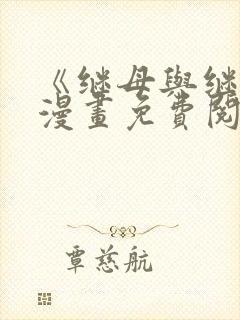 《继母與继
漫畫免費閱
覃慈航